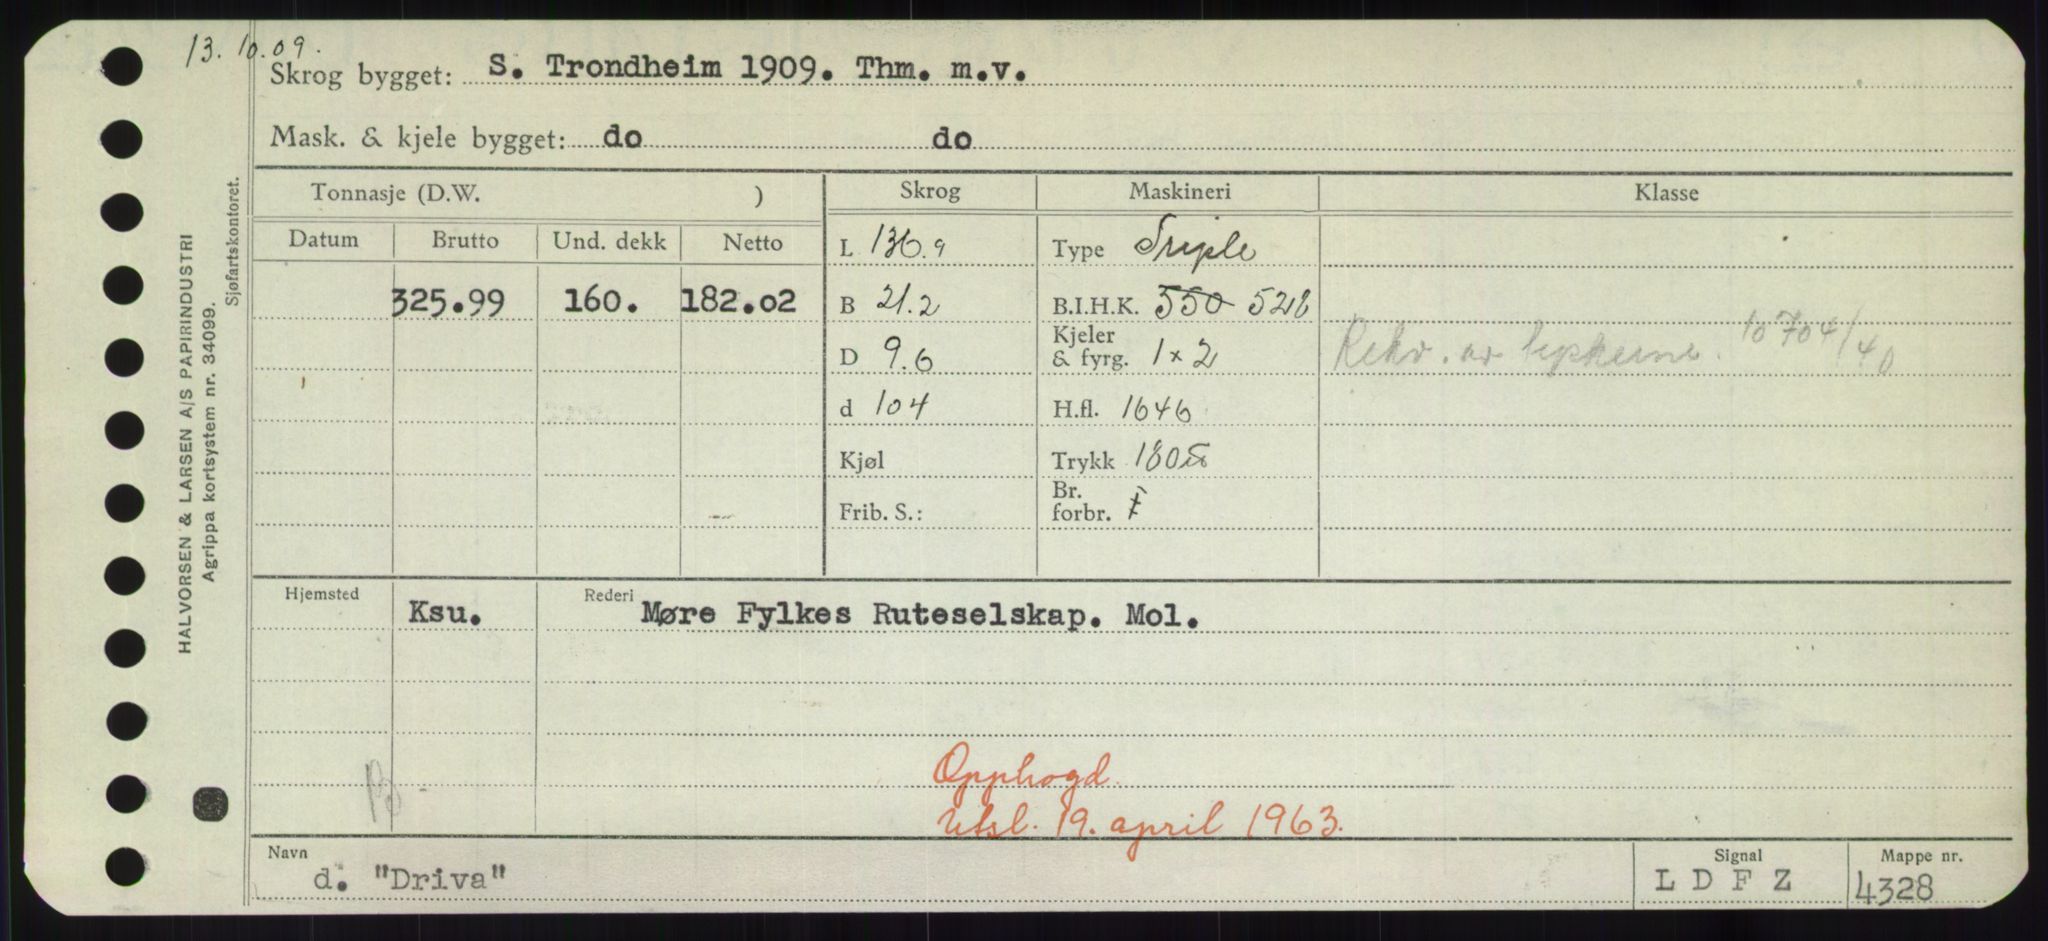 13. 10. 09.
Skrog bygget: S. Trondheim 1909. Thm. m.v.
Mask. & kjele bygget: do do
Tonnasje (D.W. ) Skrog Maskineri Klasse
Datum Brutto Und. dekk Netto L 136.9 Type Triple
325.99 160. 182.02 B 21.2 B.I.H.K. 550 528
D 9.6 Kjeler & fyrg. 1x2 10704/40
d 104 H.fl. 1646
Kjøl Trykk 180
Frib. S.: Br. forbr.
Hjemsted Ksu. Rederi Møre Fylkes Ruteselskap. Mol.
Opphogd.
Utsl. 19. april 1963.
Navn d. "Driva" Signal L D F Z Mappe nr. 4328
HALVORSEN & LARSEN A/S PAPIRINDUSTRI
Agrippa kortsystem nr. 34099.
Sjøfartskontoret.